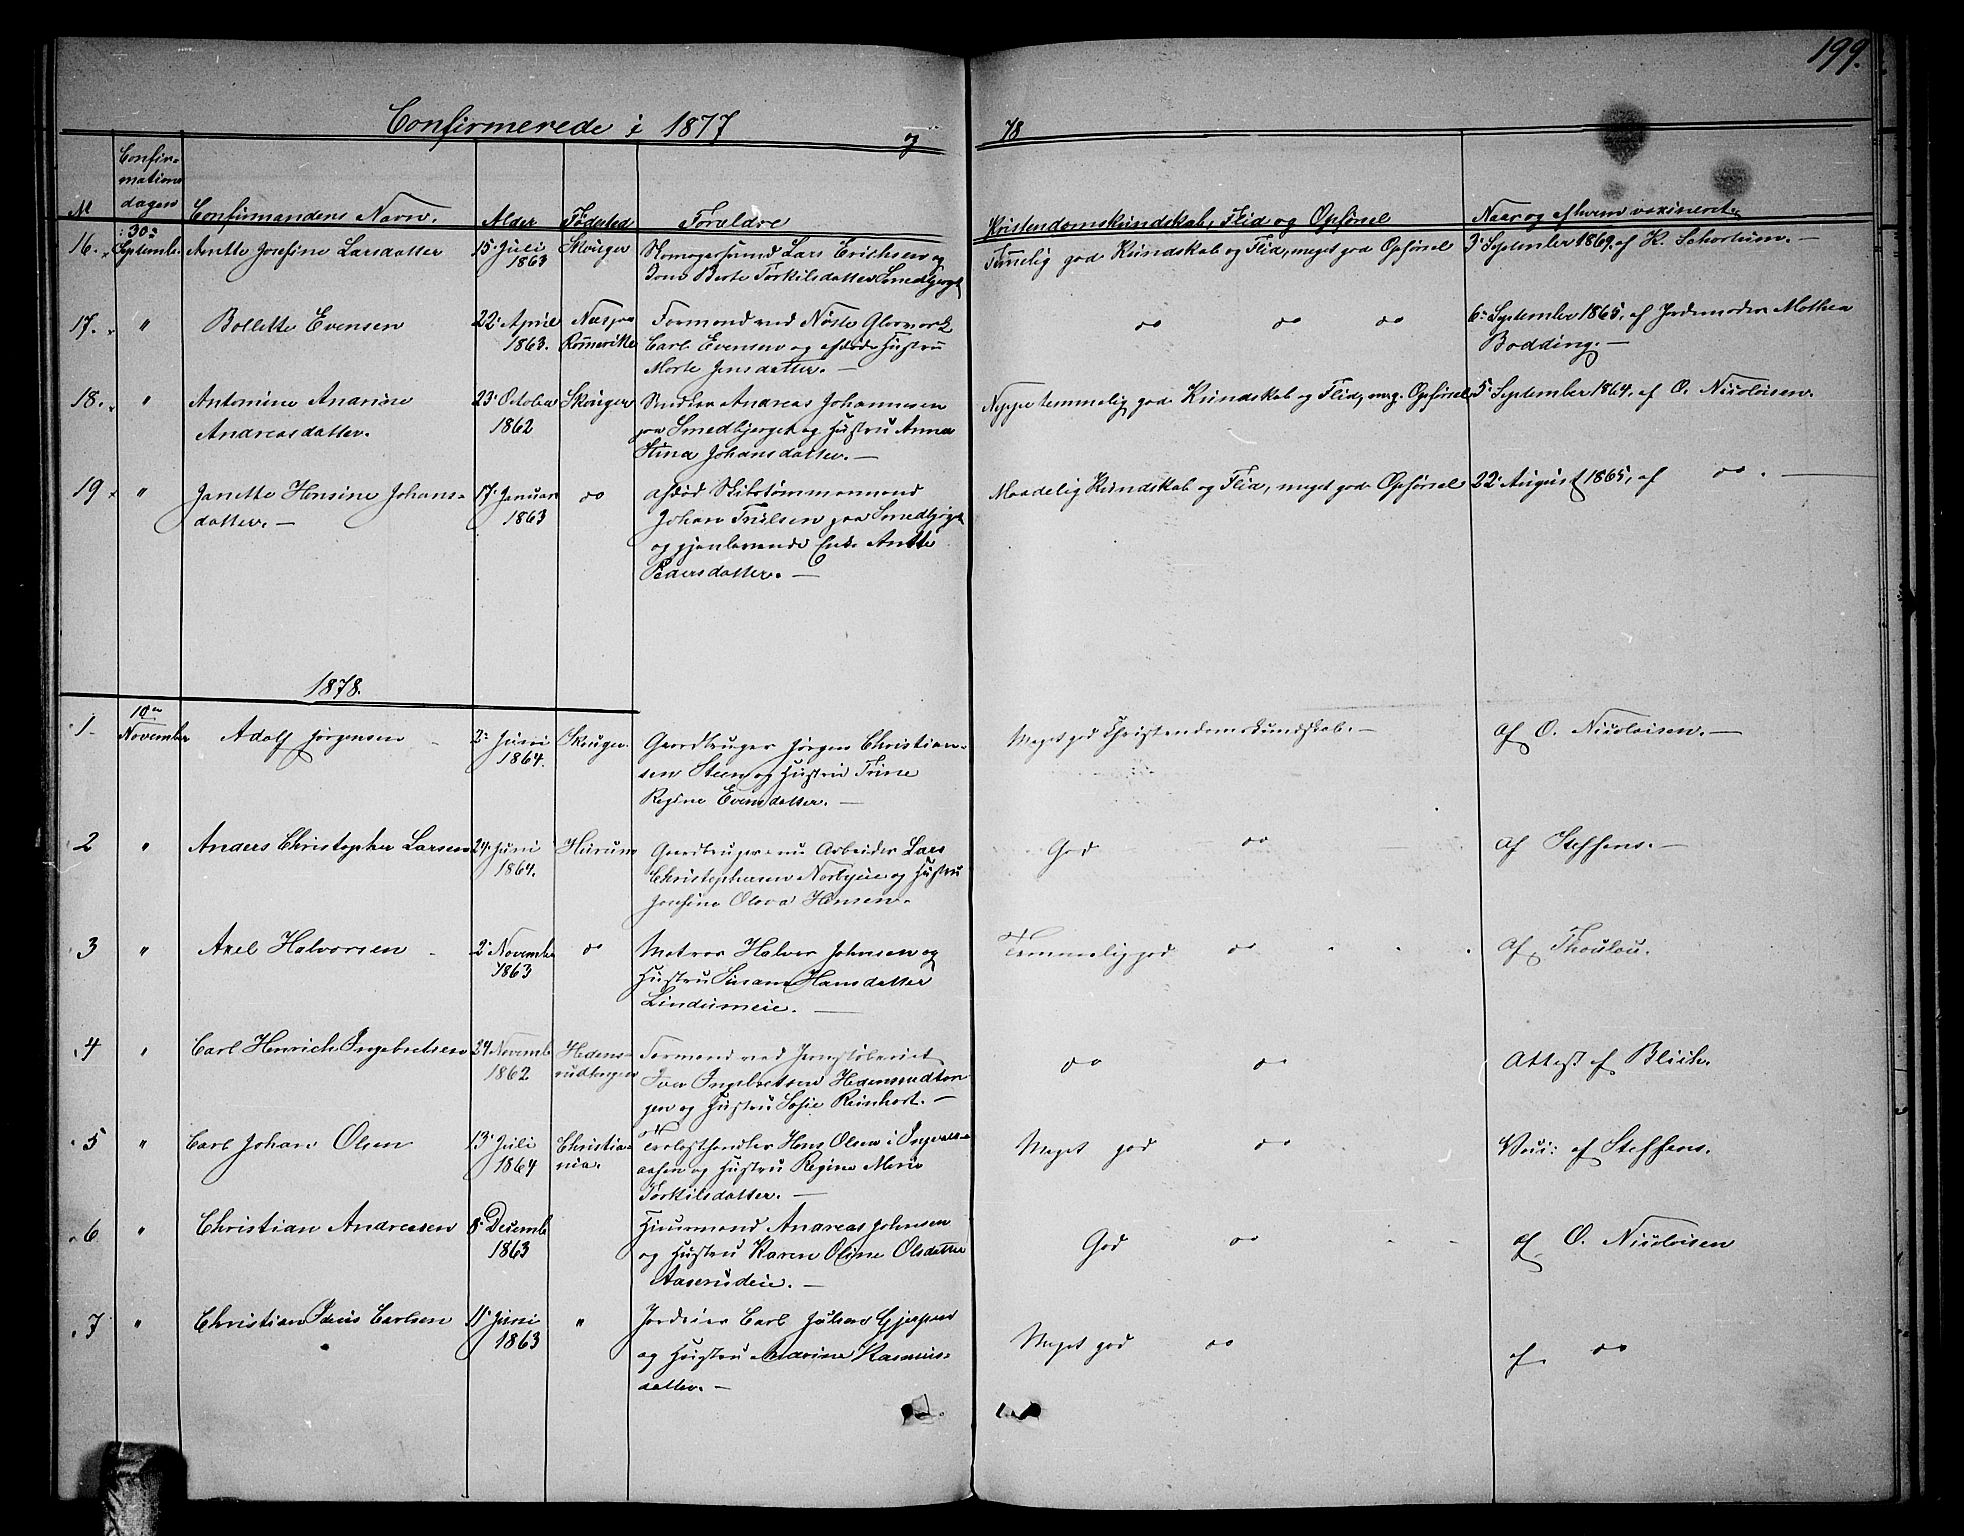 199.
Confirmerede i 1877 og 78
Confir-
mations
dagen
№ Confirmandens Navn. Alder Fødested Forældre Kristendomskundskab, Flid og Opførsel Naar og af hvem vaxineret.
30.
16. Septemb. Anette Josefine Larsdatter 15 Juli 1863 Skouger Skomagersvend Lars Erichsen og
Berte Torkilsdatter Smedbjerget
Temmelig god Kundskab og Flid, meget god Opførsel 3 September 1869, af K. Schortum. —
17. " Bollette Evensen 22 April 1863. Næs paa Romerike Formand ved Nøste Glasværk
Carl Evensen og afdøde Hustru
Marte Jensdatter. —
do do do 6 September 1865, af Jordemoder Mathea
Bodding. —
18. " Antonine Andrine
Andreasdatter. 23 October 1862 Skouger Snedker Andreas Johannesen
paa Smedbjerget og Hustru Anna
Stina Johansdatter. —
Neppe temmelig god Kundskab og Flid, meg. g. Opførsel 5 September 1864, af O. Nicolaisen.
19 " Janette Hansine Johans-
datter. — 17 Januar 1863 do afdød
Johan Truelsen paa Smedbjerget
og gjenlevende Enke Anette
Pedersdatter. —
Maadelig Kundskab og Flid, meget god Opførsel 22 August 1865, af do. —
1878.
10de
1. November Adolf Jørgensen 2 Juni 1864. Skouger. Gaardbruger Jørgen Christian-
sen Steen og Hustru Trine
Regine Evensdatter. —
Meget god Christendomskundskab. — af O. Nicolaisen. —
2 " Anders Christopher Larsen 24 Juni 1864. Hurum Gaardbruger nu Arbeider Lars
Christophersen Norbyeie og Hustru
Josefine Olava Hansen.
God do af Steffens. —
3 " Axel Halvorsen 2 November 1863 do Matros Halvor Johnsen og
Hustru Susan Hansdatter
Lindumeie. —
Temmelig god do af Thoulou.
4 " Carl Henrich Ingebretsen 24 Novemb 1862 Hedens-
rudtangen Formand ved Jernstøberiet
Ingebretsen Hedensrudtan
gen og Hustru Sofie Reinhart. —
do do Attest af Blich.
5 " Carl Johan Olsen 13 Juli 1864 Christia-
nia. Trælasthandler Hans Olsen i Ingvals-
aasen og Hustru Regine Marie
Torkilsdatter. —
Meget god do af Steffens.
6 " Christian Andreasen 8 Decemb 1863 Huusmand Andreas Johnsen
og Hustru Karen Oline Olsdatter
Aaserudeie. —
God do af O. Nicolaisen
7 " Christian Carlsen 11 Juni 1863 " Jordeier Carl Julsen Gjerpen
og Hustru Andrine Rasmus-
datter. —
Meget god do af do